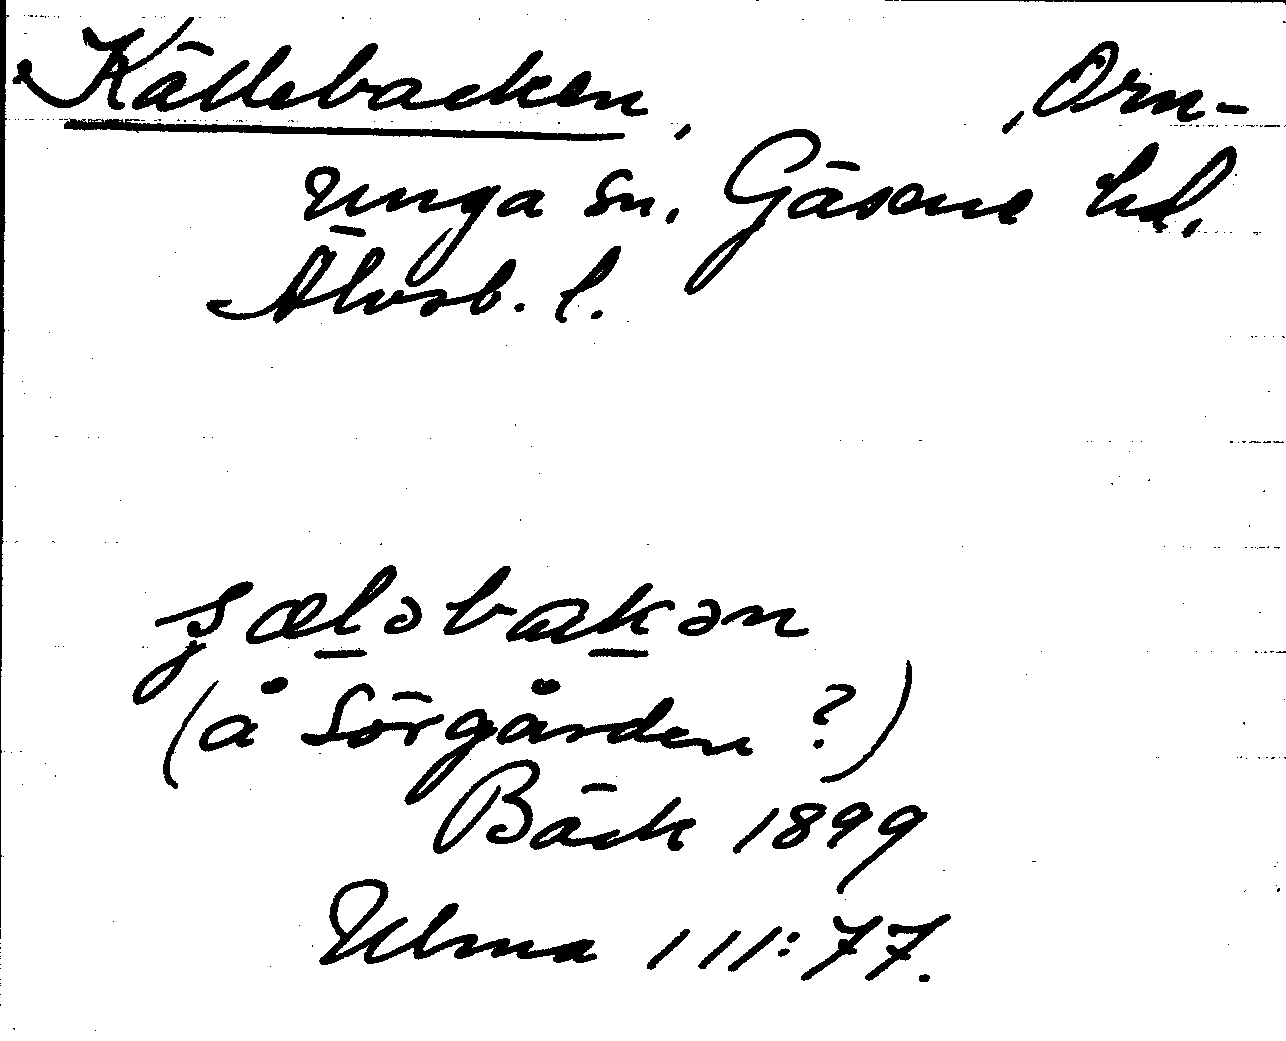 Källebacken, Orn-
unga sn, Gäsene hd,
Älvsb. l.
ʂælǝbakǝn
(å Sörgården ?)
Bäck 1899
Ulma 111:77.